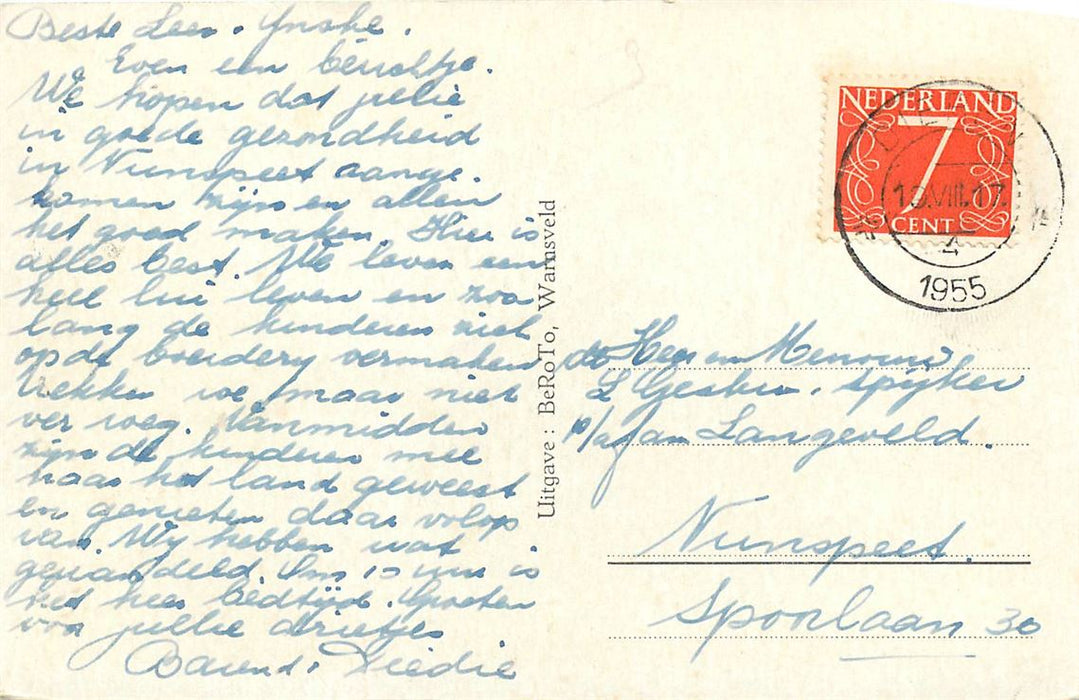 Beste Leen. Ynske.
Even een berichtje.
We hopen dat jullie
in goede gezondheid
in Nunspeet aange-
komen zijn en allen
het goed maken. Hier is
alles best. We leven een
heel lui leven en zoo
lang de kinderen zich
op de boerdery vermaken
trekken we maar niet
ver weg. Vanmidden
zijn de kinderen mee
naar het land geweest
en genieten daar volop
van. Wy hebben wat
gewandeld. Om 10 uur is
het hier bedtijd. Groeten
van jullie drietjes
Barend. Diedie
Uitgave: BeRoTo, Warnsveld
NEDERLAND
7
CENT
VIII.17
4
1955
Heer en Mevrouw
L Geslin. Spijker
p/a fam Langeveld.
Nunspeet.
Spoorlaan 30